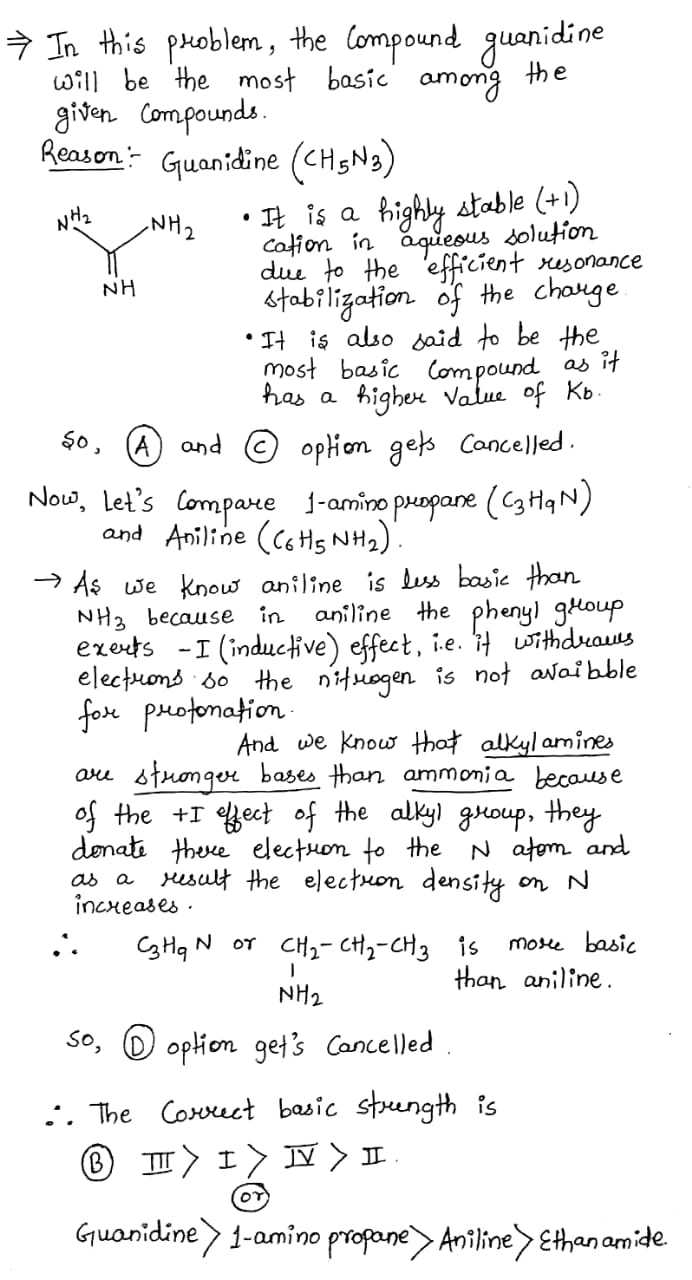 ⇒ In this problem, the Compound guanidine
will be the most basic among the
given Compounds.
Reason:- Guanidine (CH5N3)
NH2
NH2
NH
• It is a highly stable (+1)
cation in aqueous solution
due to the efficient resonance
stabilization of the charge
• It is also said to be the
most basic Compound as it
has a higher Value of Kb.
So, Ⓐ and Ⓒ option gets Cancelled.
Now, Let's Compare 1-amino propane (C3H9N)
and Aniline (C6H5NH2).
→ As we know aniline is less basic than
NH3 because in aniline the phenyl group
exerts -I (inductive) effect, i.e. it withdraws
electrons so the nitrogen is not avaibble
for protonation.
And we know that alkylamines
are stronger bases than ammonia because
of the +I effect of the alkyl group, they
donate there electron to the N atom and
as a result the electron density on N
increases.
∴ C3H9N or CH2-CH2-CH3 is more basic
NH2
than aniline.
So, Ⓓ option get's Cancelled.
∴ The Correct basic strength is
Ⓑ III > I > IV > II.
or
Guanidine > 1-amino propane > Aniline > Ethanamide.